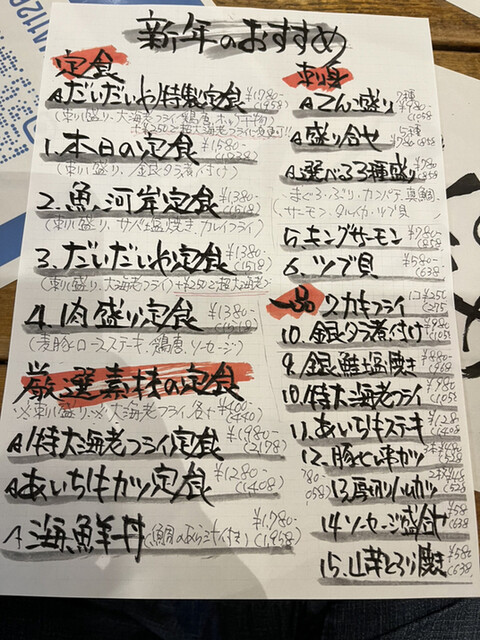 新年のおすすめ
定食
Aだいだいや特製定食 ¥1780-
(1958)
(刺し盛り、大海老フライ、鶏唐、ホッケ干物)
1.本日の定食 ¥1580-
(1738)
(刺し盛り、銀タラ煮付け)
2.魚河岸定食 ¥1380-
(1518)
(刺し盛り、サバ塩焼き、カレイフライ)
3.だいだいや定食 ¥1380-
(1518)
(刺し盛り、大海老フライ)
4.肉盛り定食 ¥1380-
(1518)
(麦豚ロースステキ、鶏唐、ソーセージ)
厳選素材の定食
※刺し盛り※大海老フライ各+¥400
(440)
A特大海老フライ定食 ¥1980-
(2178)
Aあいち牛カツ定食 ¥1280-
(1408)
A海鮮丼(鯛のあら汁付き) ¥1780-
(1958)
刺身
Aてんこ盛り 7種
A盛り合せ 5種
A選べる3種盛り ¥780
(858
まぐろ、ぶり、カンパチ、真鯛、
サーモン、タルイカ、ツブ貝
5.キングサーモン ¥780
(858
6.ツブ貝 ¥580-
(638)
一品
カキフライ 1コ¥250
(275
銀タラ煮付け ¥980
9.銀鮭塩焼き
10.特大海老フライ
11.あいち牛ステキ
12.豚ヒレ串カツ
13.厚切りハムカツ
14.ソーセージ盛合せ ¥580
(638
15.山芋とろり焼き ¥580
(638)